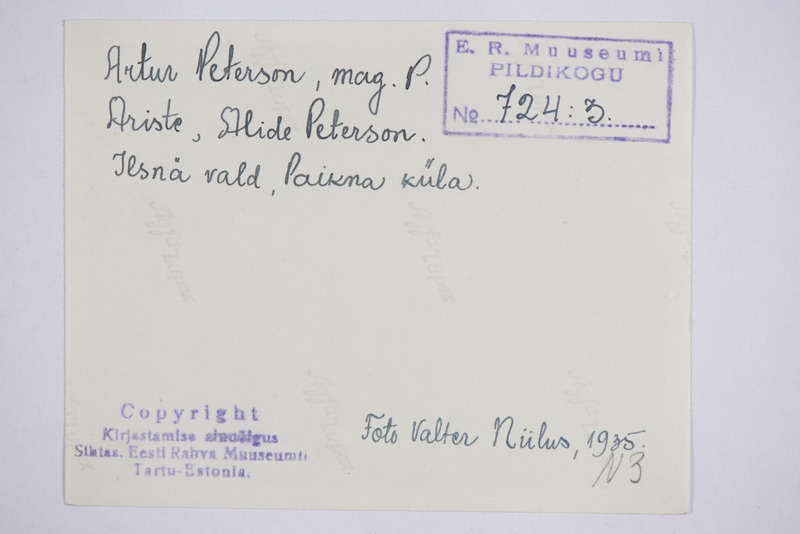 Artur Peterson, mag. P.
Ariste, Alide Peterson.
Ilsnä vald, Paikna küla.
E. R. Muuseumi
PILDIKOGU
№ 724:3.
Copyright
Kirjastamise ainuõigus
Sihtas. Eesti Rahva Muuseumil
Tartu-Estonia.
Foto Valter Niilus, 1935.
N3